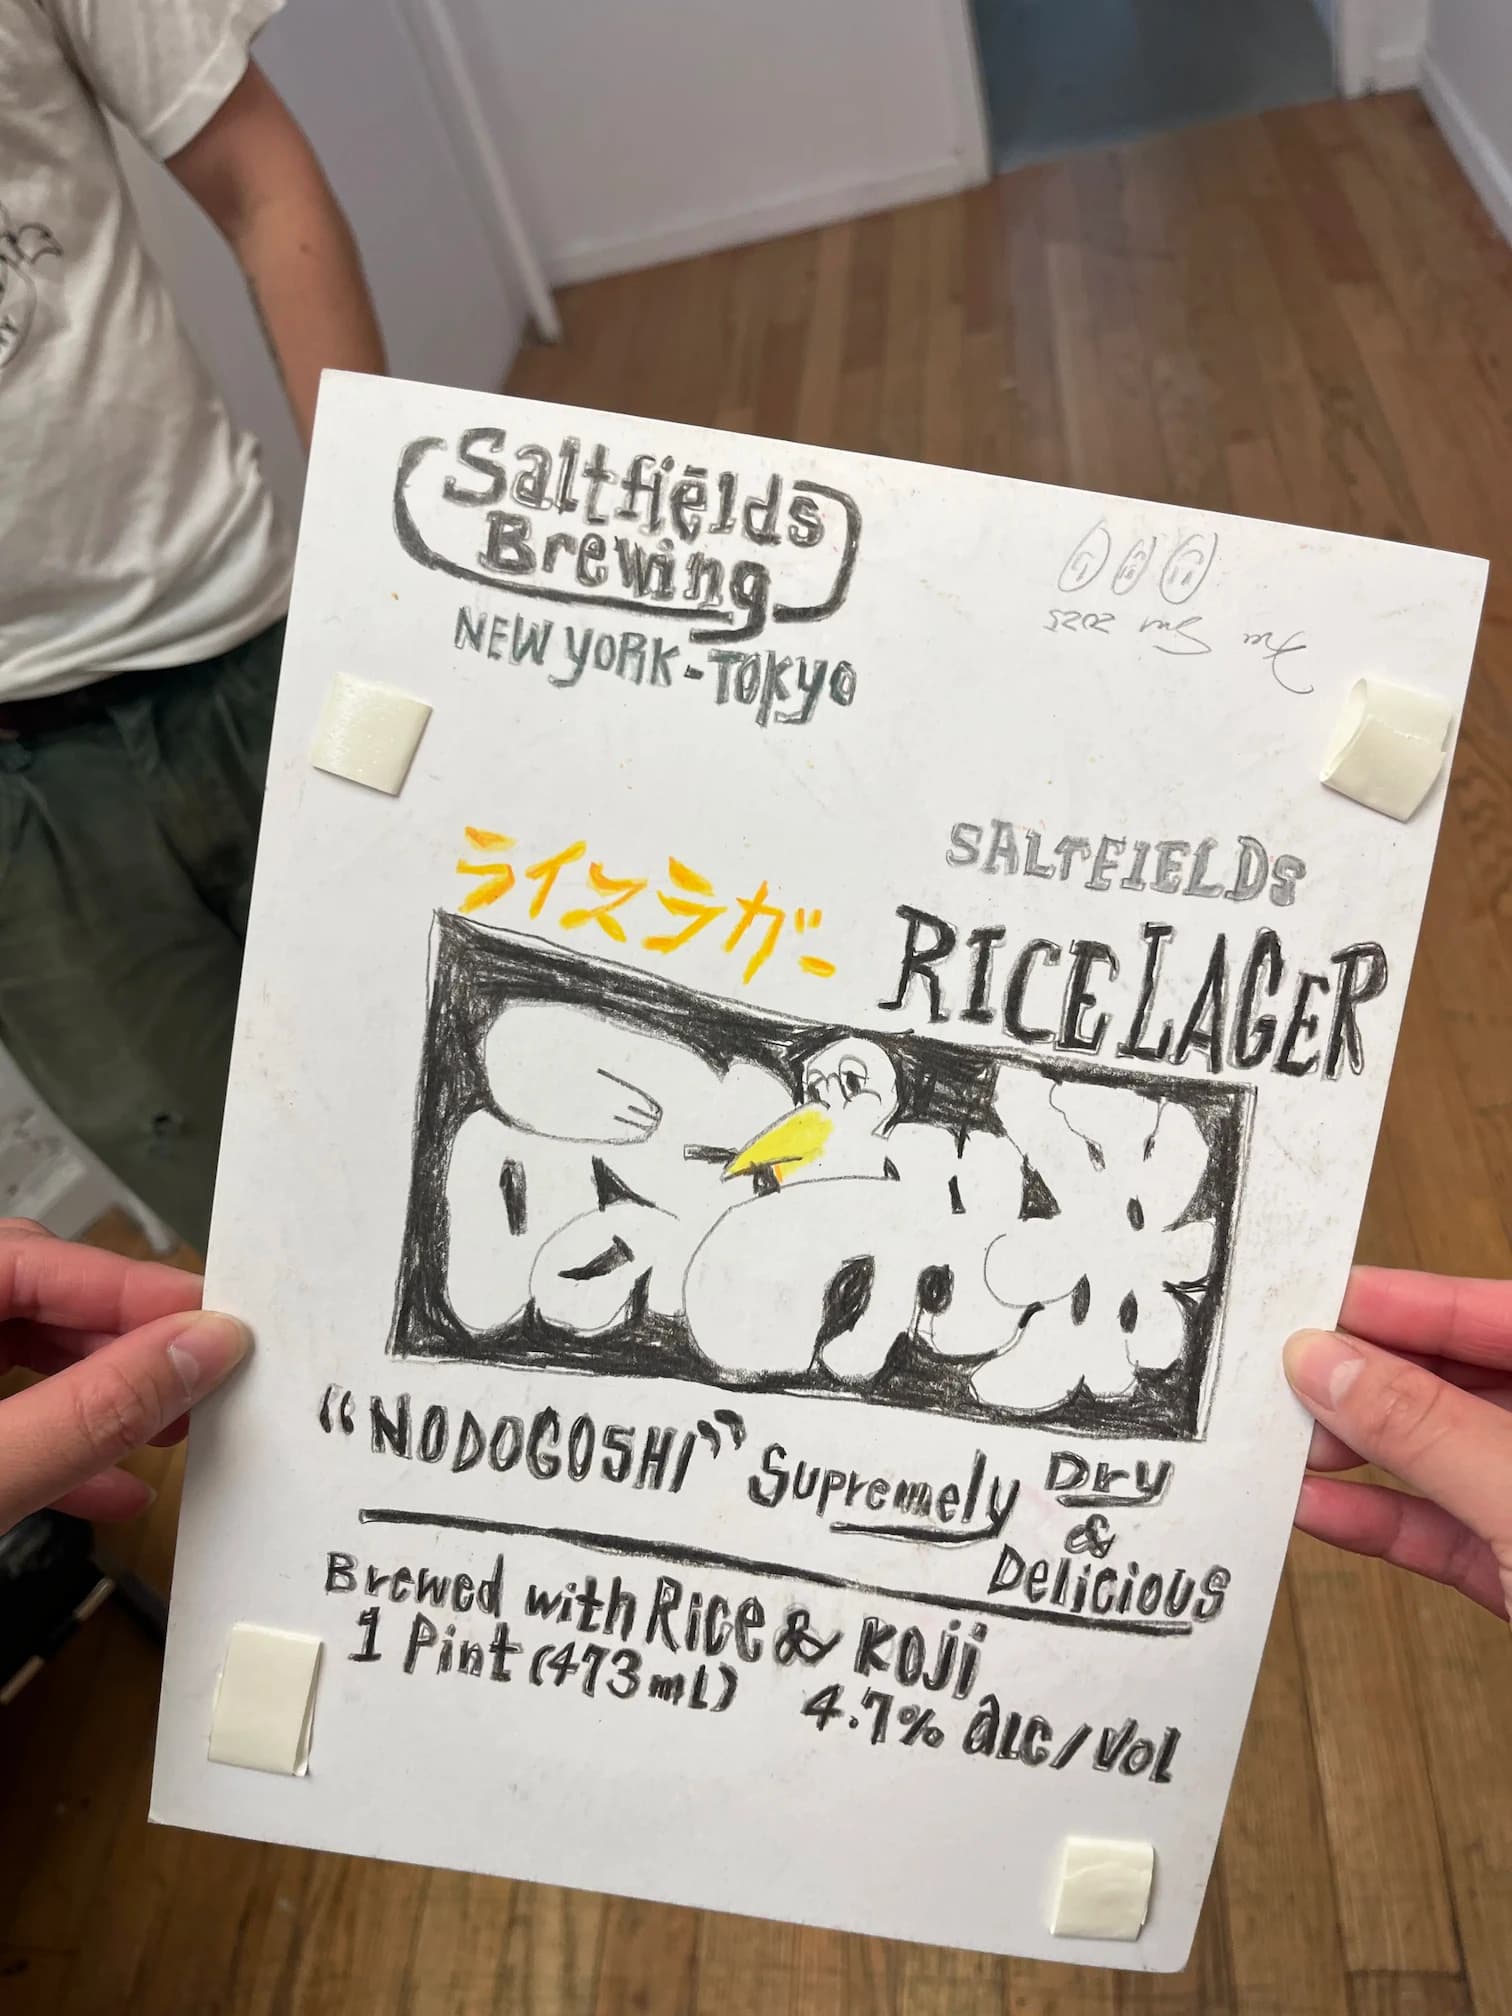 Saltfields
Brewing
NEW YORK-TOKYO
2025
ライスラガー
SALTFIELDS
RICE LAGER
“NODOGOSHI” Supremely Dry
&
Delicious
Brewed with Rice & Koji
1 Pint (473 mL) 4.7% alc/vol